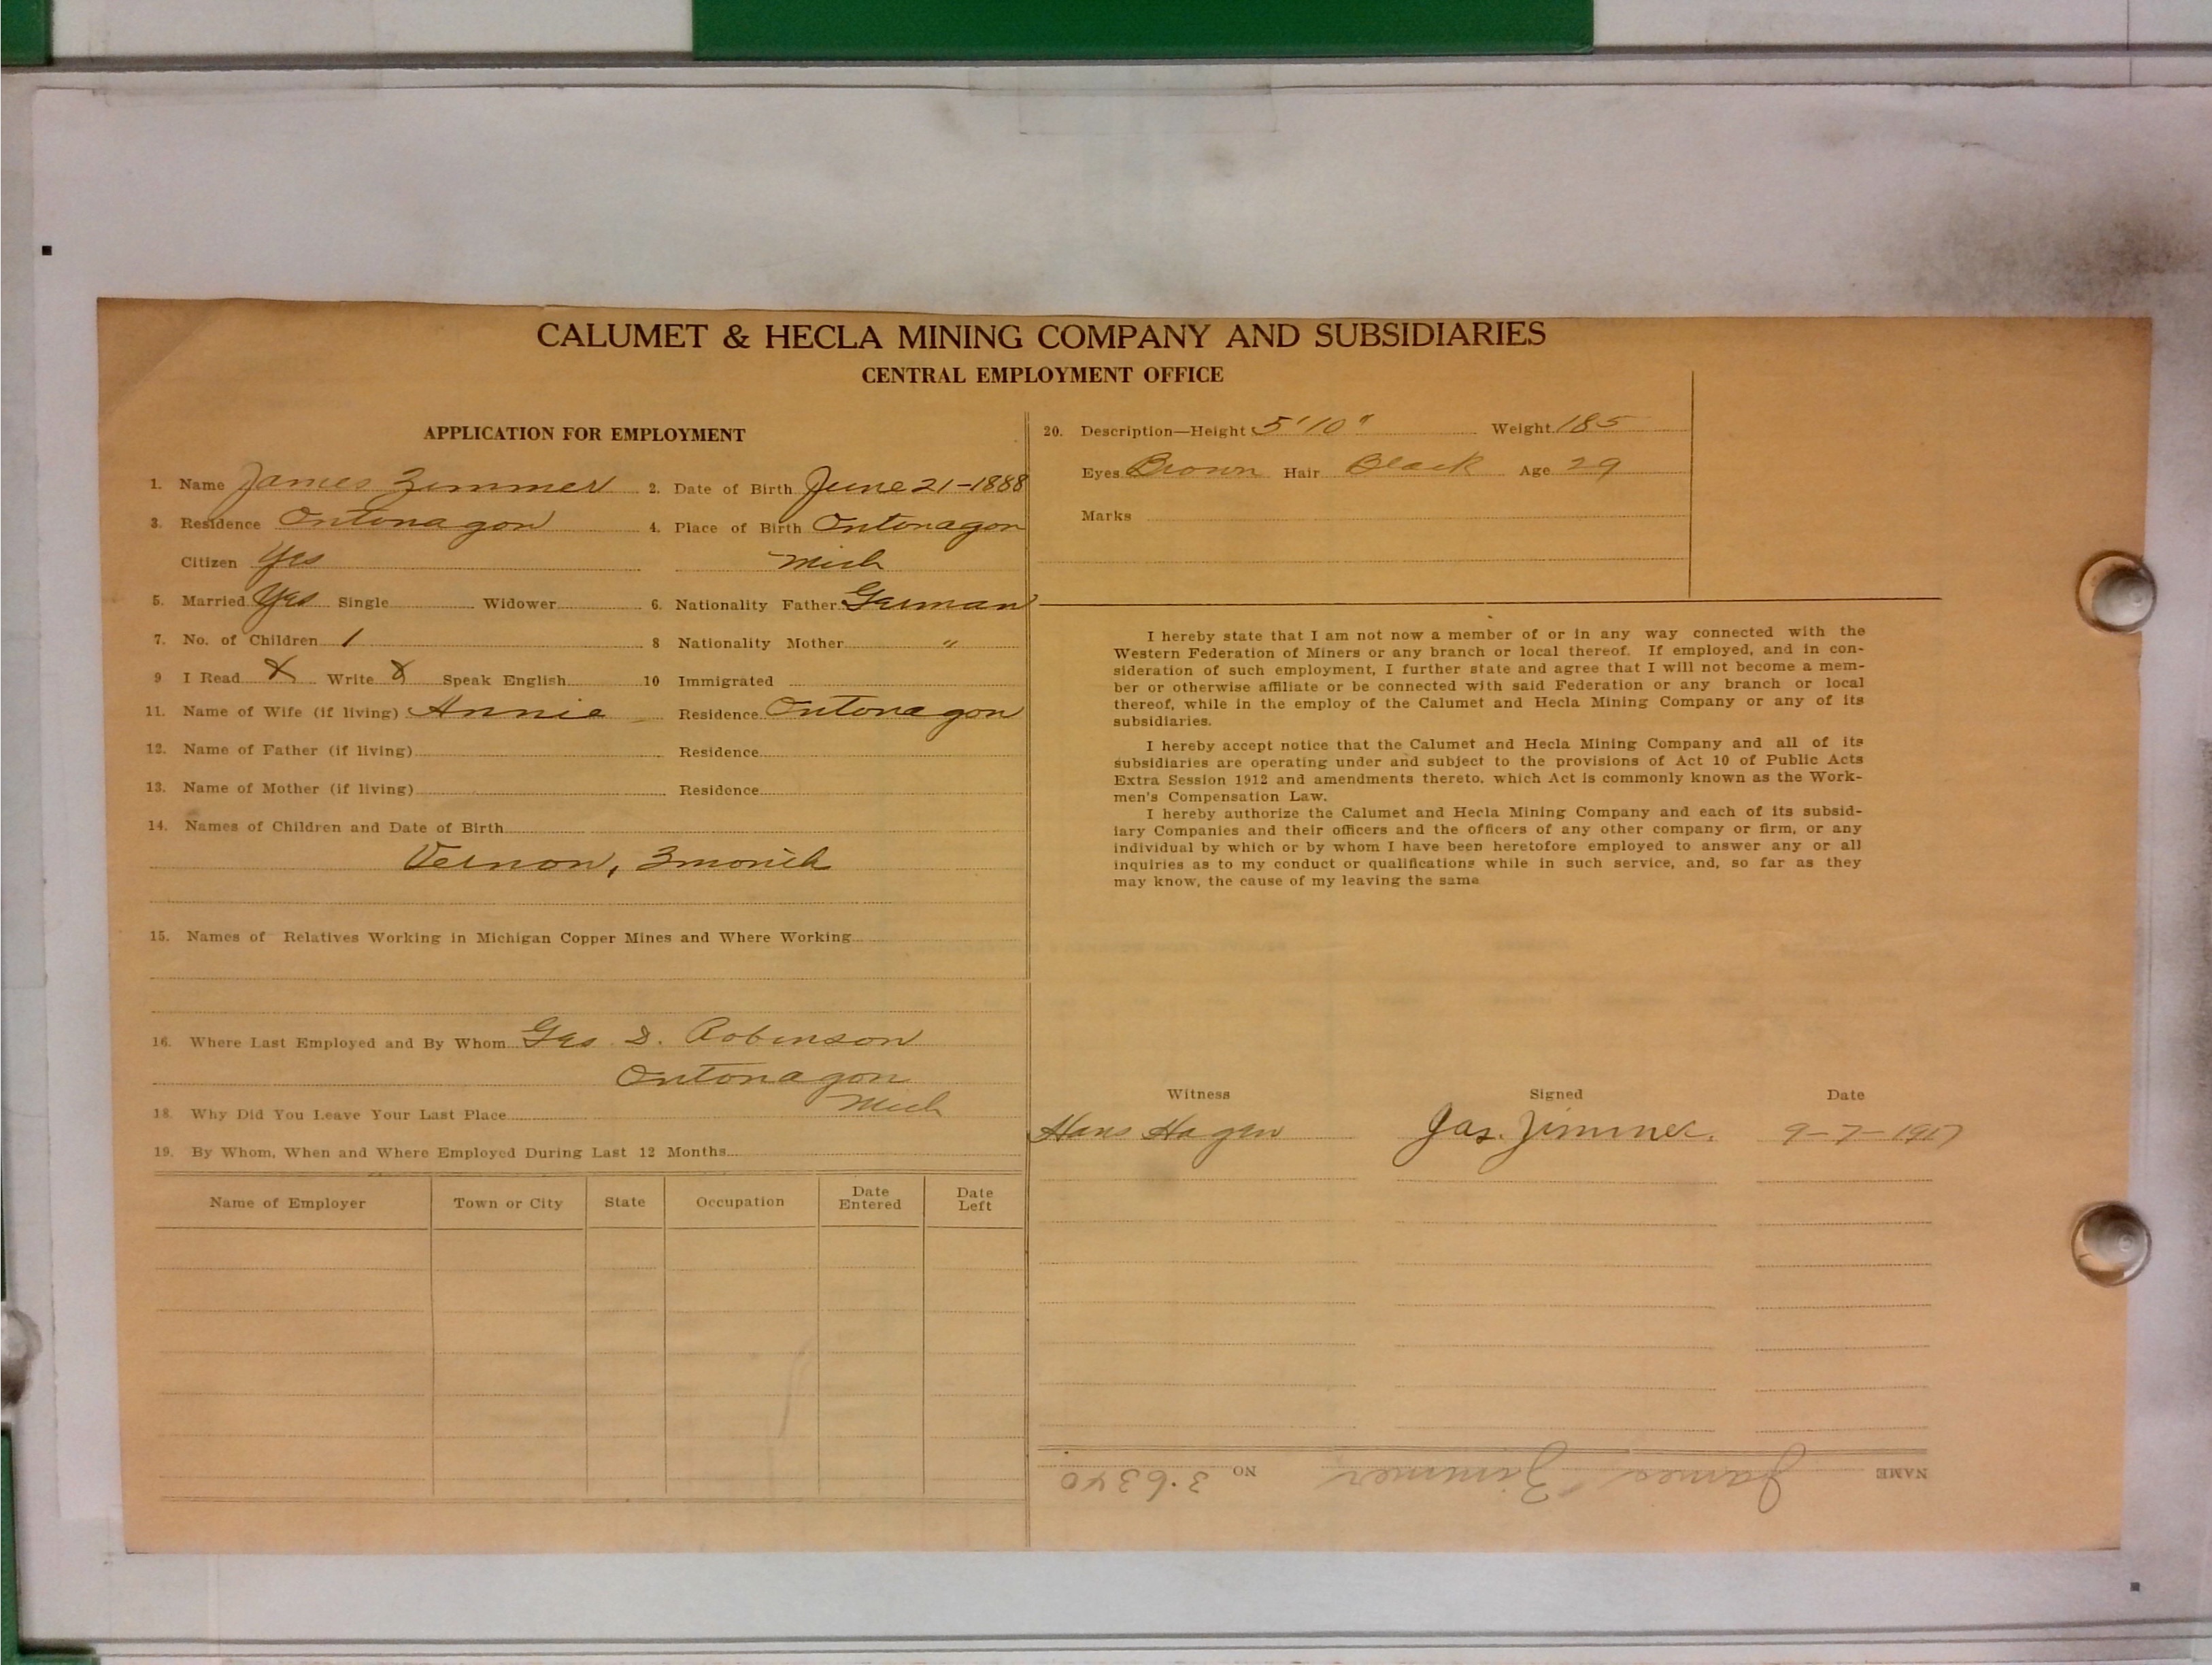 CALUMET & HECLA MINING COMPANY AND SUBSIDIARIES
CENTRAL EMPLOYMENT OFFICE
APPLICATION FOR EMPLOYMENT
1. Name James Zimmer 2. Date of Birth June 21-1888
3. Residence Ontonagon 4. Place of Birth Ontonagon
Citizen Yes Mich
5. Married Yes Single Widower 6. Nationality Father German
7. No. of Children 1 8 Nationality Mother "
9 I Read X Write X Speak English 10 Immigrated
11. Name of Wife (if living) Annie Residence Ontonagon
12. Name of Father (if living) Residence
13. Name of Mother (if living) Residence
14. Names of Children and Date of Birth
Vernon, 3 month
15. Names of Relatives Working in Michigan Copper Mines and Where Working
16. Where Last Employed and By Whom D. Robinson
Ontonagon
Mich
18. Why Did You Leave Your Last Place
19. By Whom, When and Where Employed During Last 12 Months
Name of Employer Town or City State Occupation Date Entered Date Left
20. Description—Height 5'10" Weight 185
Eyes Brown Hair Black Age 29
Marks
I hereby state that I am not now a member of or in any way connected with the
Western Federation of Miners or any branch or local thereof. If employed, and in con-
sideration of such employment, I further state and agree that I will not become a mem-
ber or otherwise affiliate or be connected with said Federation or any branch or local
thereof, while in the employ of the Calumet and Hecla Mining Company or any of its
subsidiaries.
I hereby accept notice that the Calumet and Hecla Mining Company and all of its
subsidiaries are operating under and subject to the provisions of Act 10 of Public Acts
Extra Session 1912 and amendments thereto, which Act is commonly known as the Work-
men's Compensation Law.
I hereby authorize the Calumet and Hecla Mining Company and each of its subsid-
iary Companies and their officers and the officers of any other company or firm, or any
individual by which or by whom I have been heretofore employed to answer any or all
inquiries as to my conduct or qualifications while in such service, and, so far as they
may know, the cause of my leaving the same
Witness Signed Date
Hans Hagen Jas. Zimmer. 9-7-1917
NAME James Zimmer NO 36340